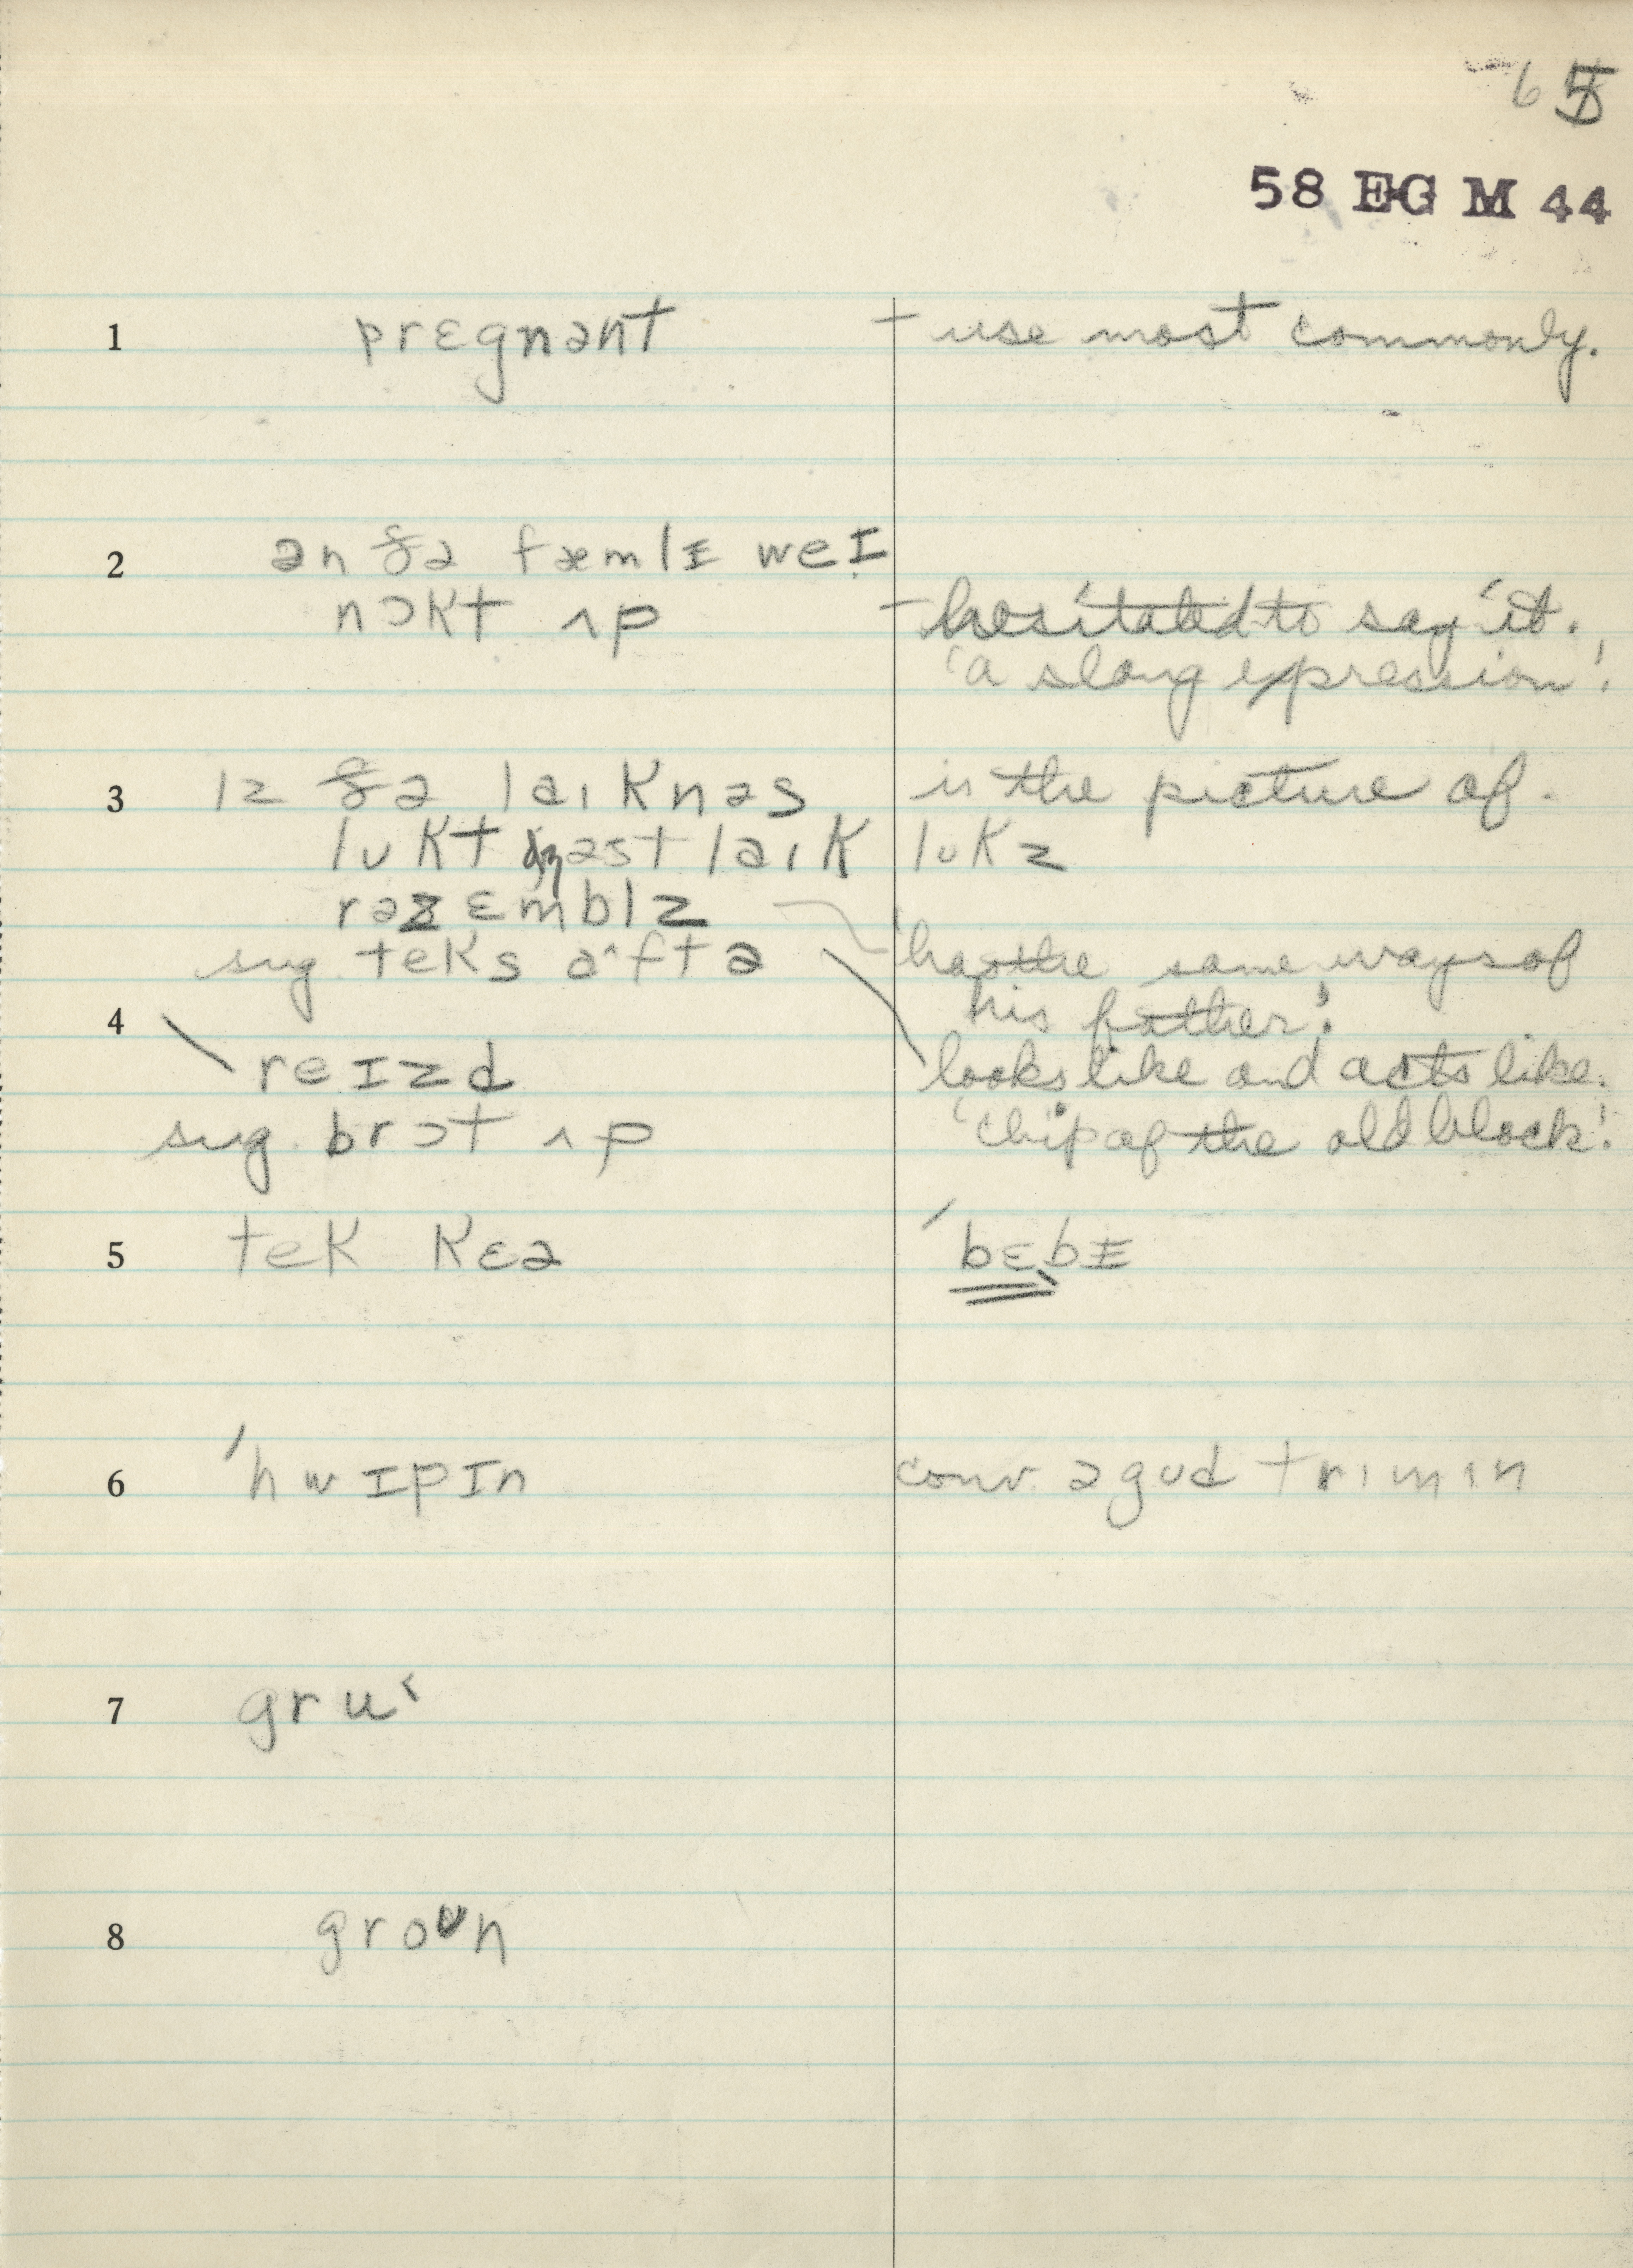 65
58 EG M 44
1 prɛgnənt – use most commonly.
2 ən ðə fæmlɪ weɪ
nɔkt ʌp – hesitated to say it.
'a slang expression'.
3 ɪz ðə laɪknəs is the picture of.
lʊkt dʒəst laɪk lʊkz
rəzɛmblz
sug. teks aˆftə 'has the same ways of
his father'.
4 reɪzd looks like and acts like.
sug. brɔt ʌp 'chip of the old block'.
5 tek kɛə 'bɛbɪ
6 'hwɪpɪn conv. ə gʊd trɪmɪn
7 gru
8 groʊn